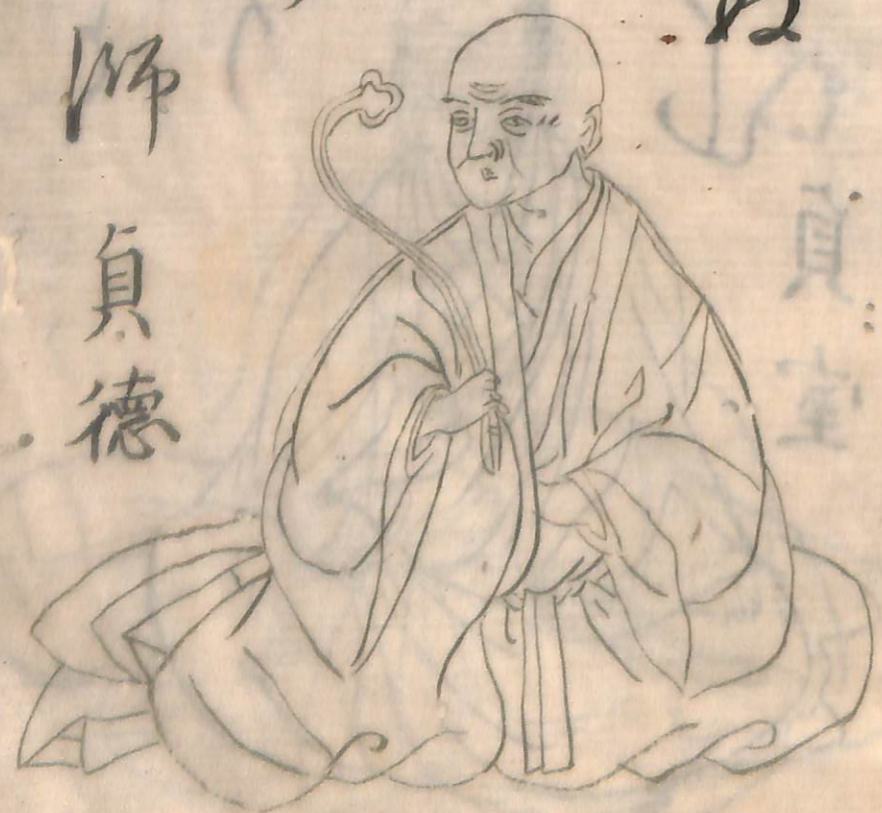 師 貞徳